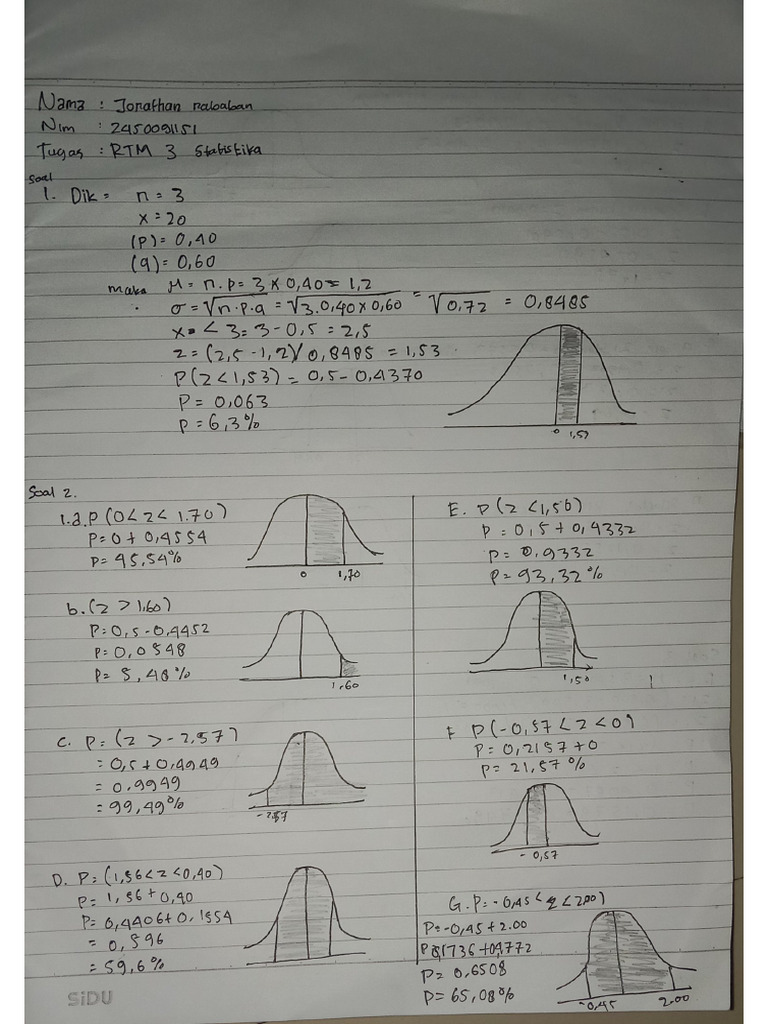 Nama : Jonathan nababan
Nim : 2450091151
Tugas : RTM 3 Statistika
Soal
1. Dik = n = 3
x = 20
(P) = 0,40
(q) = 0,60
maka μ = n.p = 3 x 0,40 = 1,2
σ = √n.p.q = √3.0,40x0,60 = √0,72 = 0,8485
x = < 3 = 3 - 0,5 = 2,5
z = (2,5 - 1,2)/0,8485 = 1,53
P(z < 1,53) = 0,5 - 0,4370
P = 0,063
P = 6,3%
0 1,53
Soal 2.
1.a. P (0 < z < 1.70)
P = 0 + 0,4554
P = 45,54%
0 1,70
b. (z > 1,60)
P = 0,5 - 0,4452
P = 0,0548
P = 5,48%
1,60
C. P = (z > -2,57)
= 0,5 + 0,4949
= 0.9949
= 99,49%
-2,57
D. P = (1,56 < z < 0,40)
P = 1,56 + 0,40
P = 0,4406 + 0,1554
= 0,596
= 59,6%
E. P(z < 1,50)
P = 0,5 + 0,4332
P = 0,9332
P = 93,32%
1,50
F P(-0,57 < z < 0)
P = 0,2157 + 0
P = 21,57%
-0,57
G. P = -0,45 < z < 2.00)
P = -0,45 + 2.00
P = 0,1736 + 0,4772
P = 0,6508
P = 65,08%
-0,45 2.00
SiDU